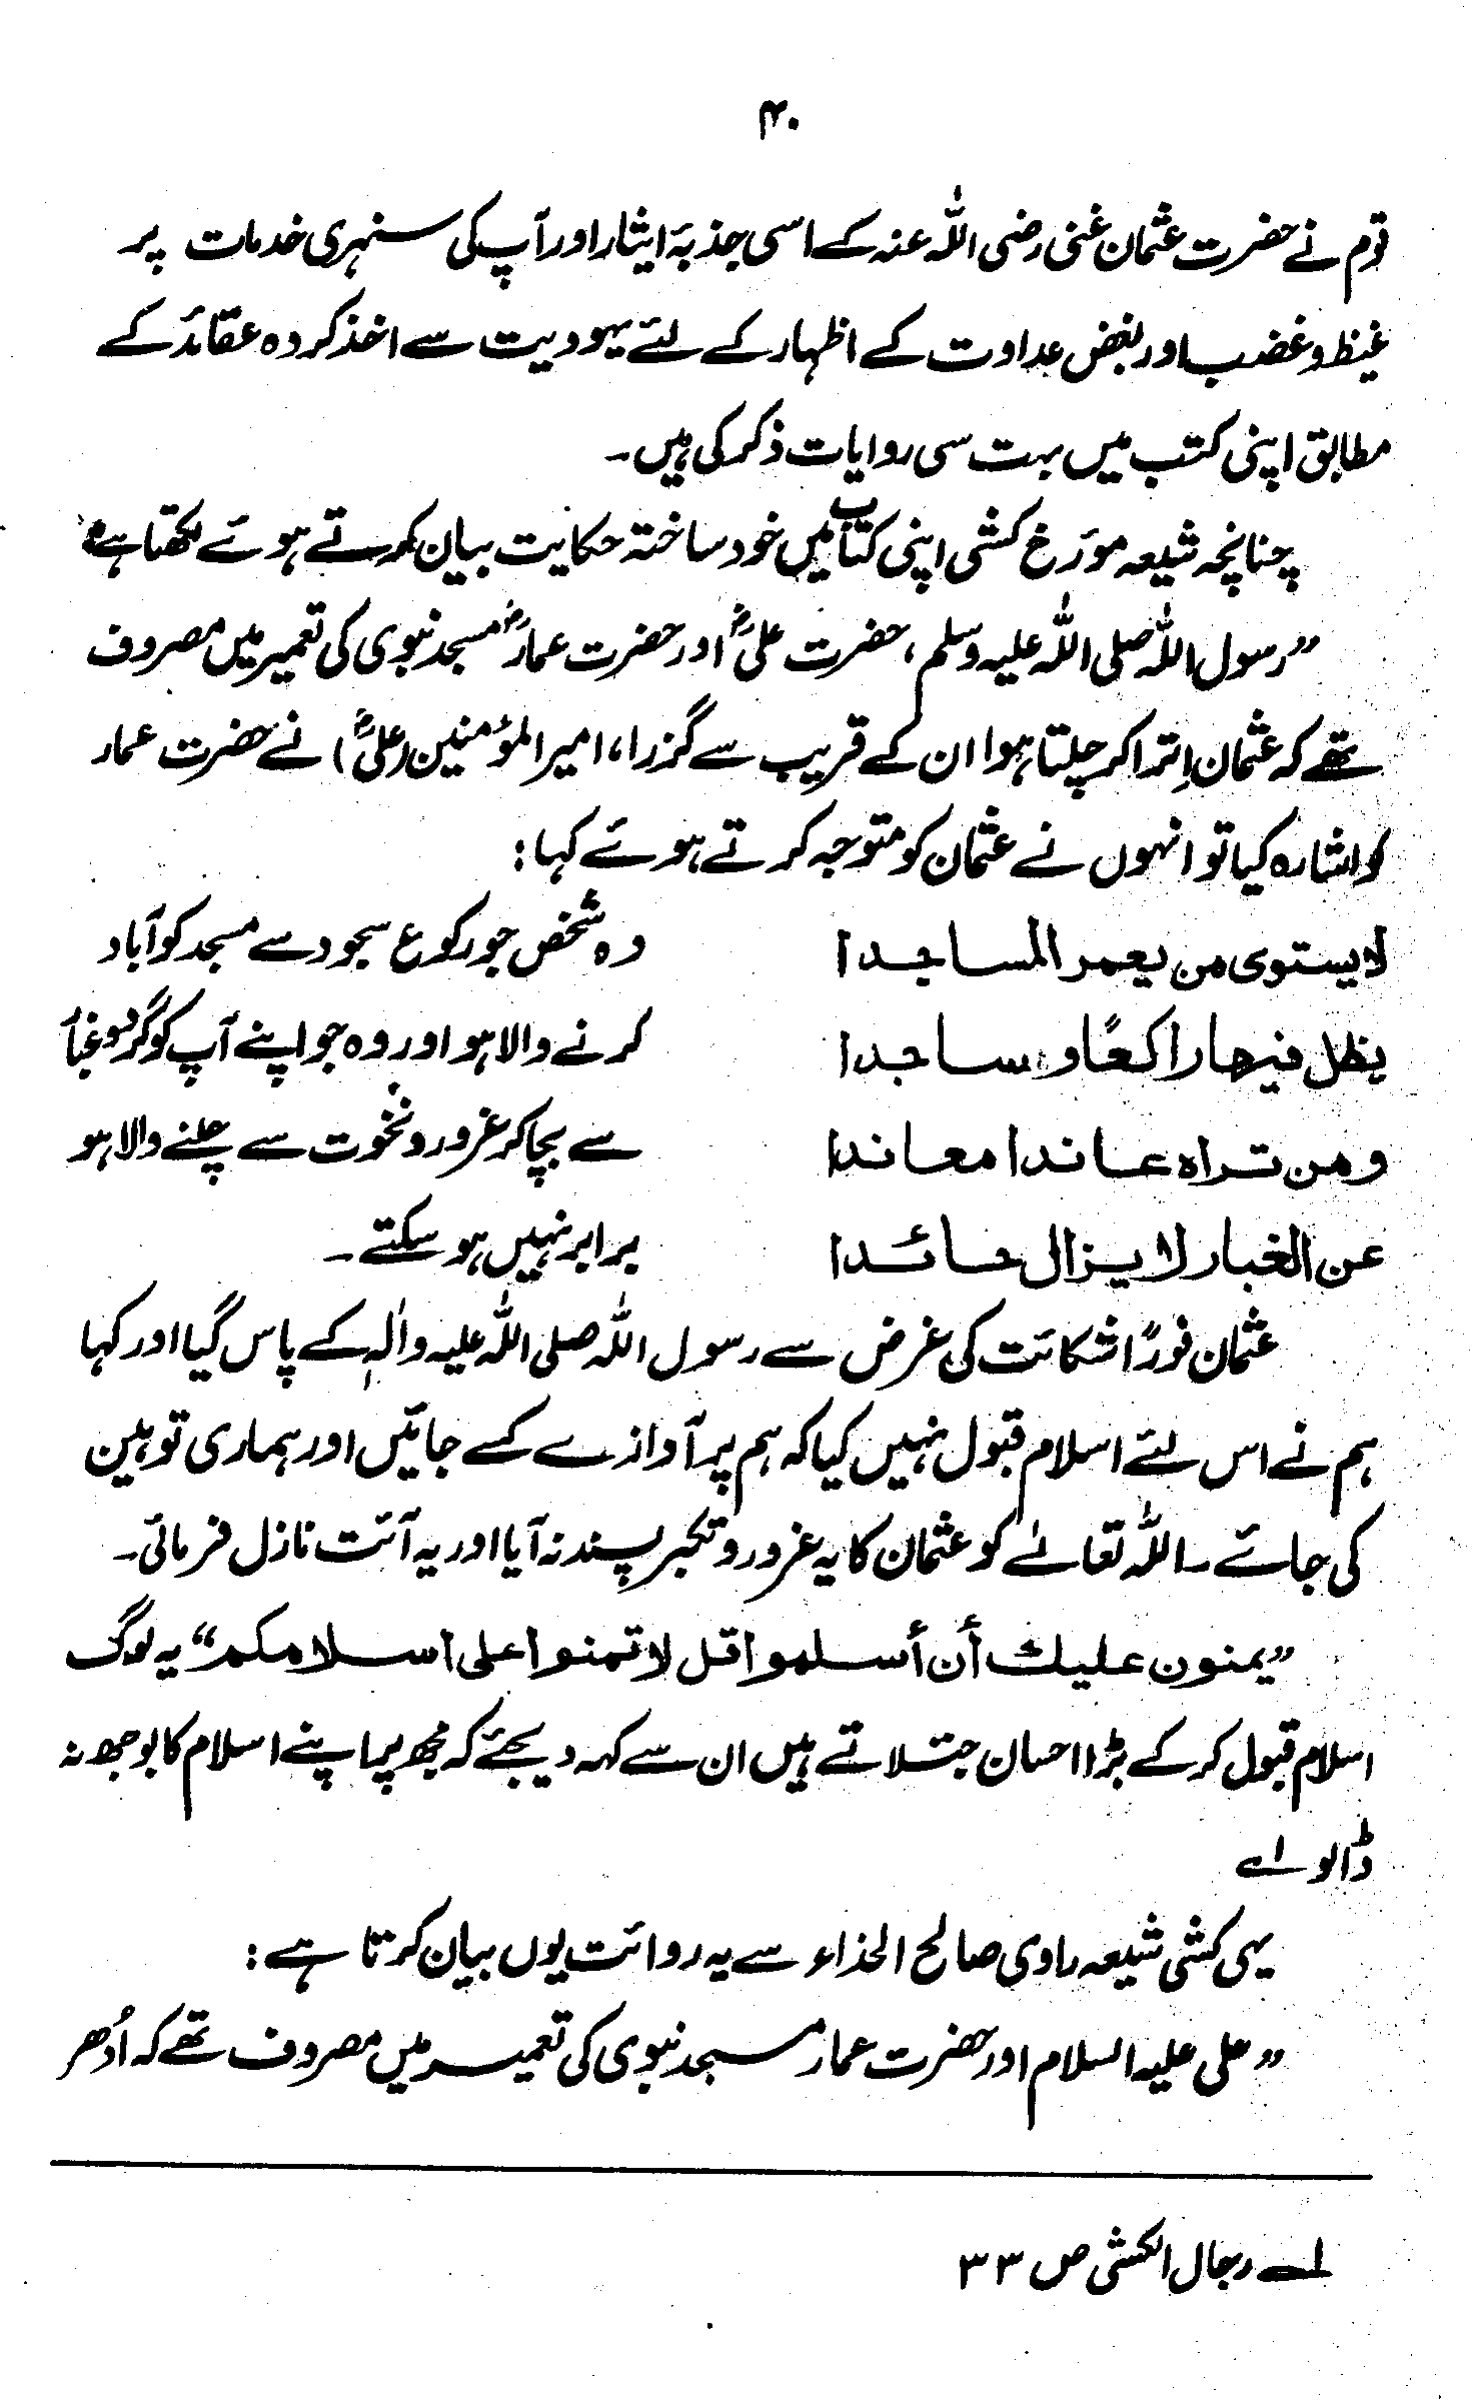 ۴۰
قوم نے حضرت عثمان غنی رضی اللہ عنہ کے اسی جذبۂ ایثار اور آپ کی سنہری خدمات پر
غیظ و غضب اور بغض عداوت کے اظہار کے لئے یہودیت سے اخذ کردہ عقائد کے
مطابق اپنی کتب میں بہت سی روایات ذکر کی ہیں۔
چنانچہ شیعہ مورّخ کشی اپنی کتاب میں خود ساختہ حکایت بیان کرتے ہوئے لکھتا ہے
”رسول اللہ صلی اللہ علیہ وسلم، حضرت علیؓ اور حضرت عمارؓ مسجد نبوی کی تعمیر میں مصروف
تھے کہ عثمان اِترا کر چلتا ہوا ان کے قریب سے گزرا، امیر المؤمنین (علیؓ) نے حضرت عمار
کو اشارہ کیا تو انہوں نے عثمان کو متوجہ کرتے ہوئے کہا:
لا يستوى من يعمر المساجدا وہ شخص جو رکوع سجود سے مسجد کو آباد
يظل فيها راكعًا و ساجدا کرنے والا ہو اور وہ جو اپنے آپ کو گرد و غبار
ومن تراه عاندا معاندا سے بچا کر غرور و نخوت سے چلنے والا ہو
عن الغبار لا يزال حائدا برابر نہیں ہو سکتے۔
عثمان فورًا شکائت کی غرض سے رسول اللہ صلی اللہ علیہ واٰلہٖ کے پاس گیا اور کہا
ہم نے اس لئے اسلام قبول نہیں کیا کہ ہم پر آوازے کسے جائیں اور ہماری توہین
کی جائے۔ اللہ تعالیٰ کو عثمان کا یہ غرور و تکبر پسند نہ آیا اور یہ آئت نازل فرمائی۔
”يمنون عليك أن أسلموا قل لا تمنوا على اسلامكم“ یہ لوگ
اسلام قبول کر کے بڑا احسان جتلاتے ہیں ان سے کہہ دیجئے کہ مجھ پر اپنے اسلام کا بوجھ نہ
ڈالو ۱ے
یہی کشی شیعہ راوی صالح الحذاء سے یہ روائت یوں بیان کرتا ہے:
”علی علیہ السلام اور حضرت عمار مسجد نبوی کی تعمیر میں مصروف تھے کہ اُدھر
۱ے رجال الکشی ص ۳۳